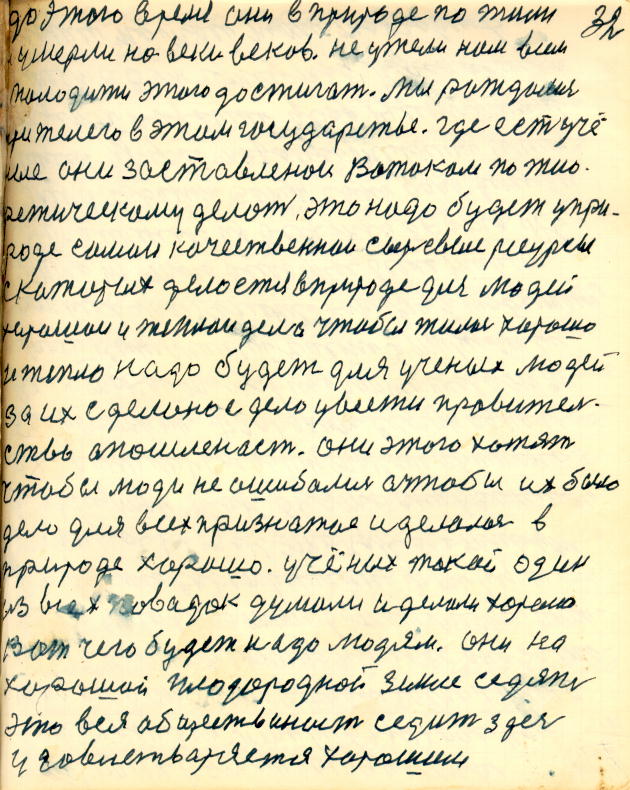 до этого время они в природе пожили 32
умерли на веки веков. неужели нам всем
молодежи этого достигат. мы рождаемся
в этом государстве. где есть учё
ные они заставленои потоком по тио-
ретическому делат, это надо будет упри-
роде самои качественнои сырсевые ресурсы
с каторых делоется в природе для людей
хорошои и тёплои дела чтобы жилося хорошо
и тепло надо будет для ученых людей
за их сделоное дело увести правител-
ство опошленаст. они этого хотят
чтобы люди не ошибалися а чтобы их было
дело для всех признатое и делалося в
природе хорошо. учёных такой один
из всех повадок думали и делали хорошо
Вот чего будет надо людям. они на
хорошой плодородной земле седять
это вся обществиност седит здеся
и удовлетваряется хорошим